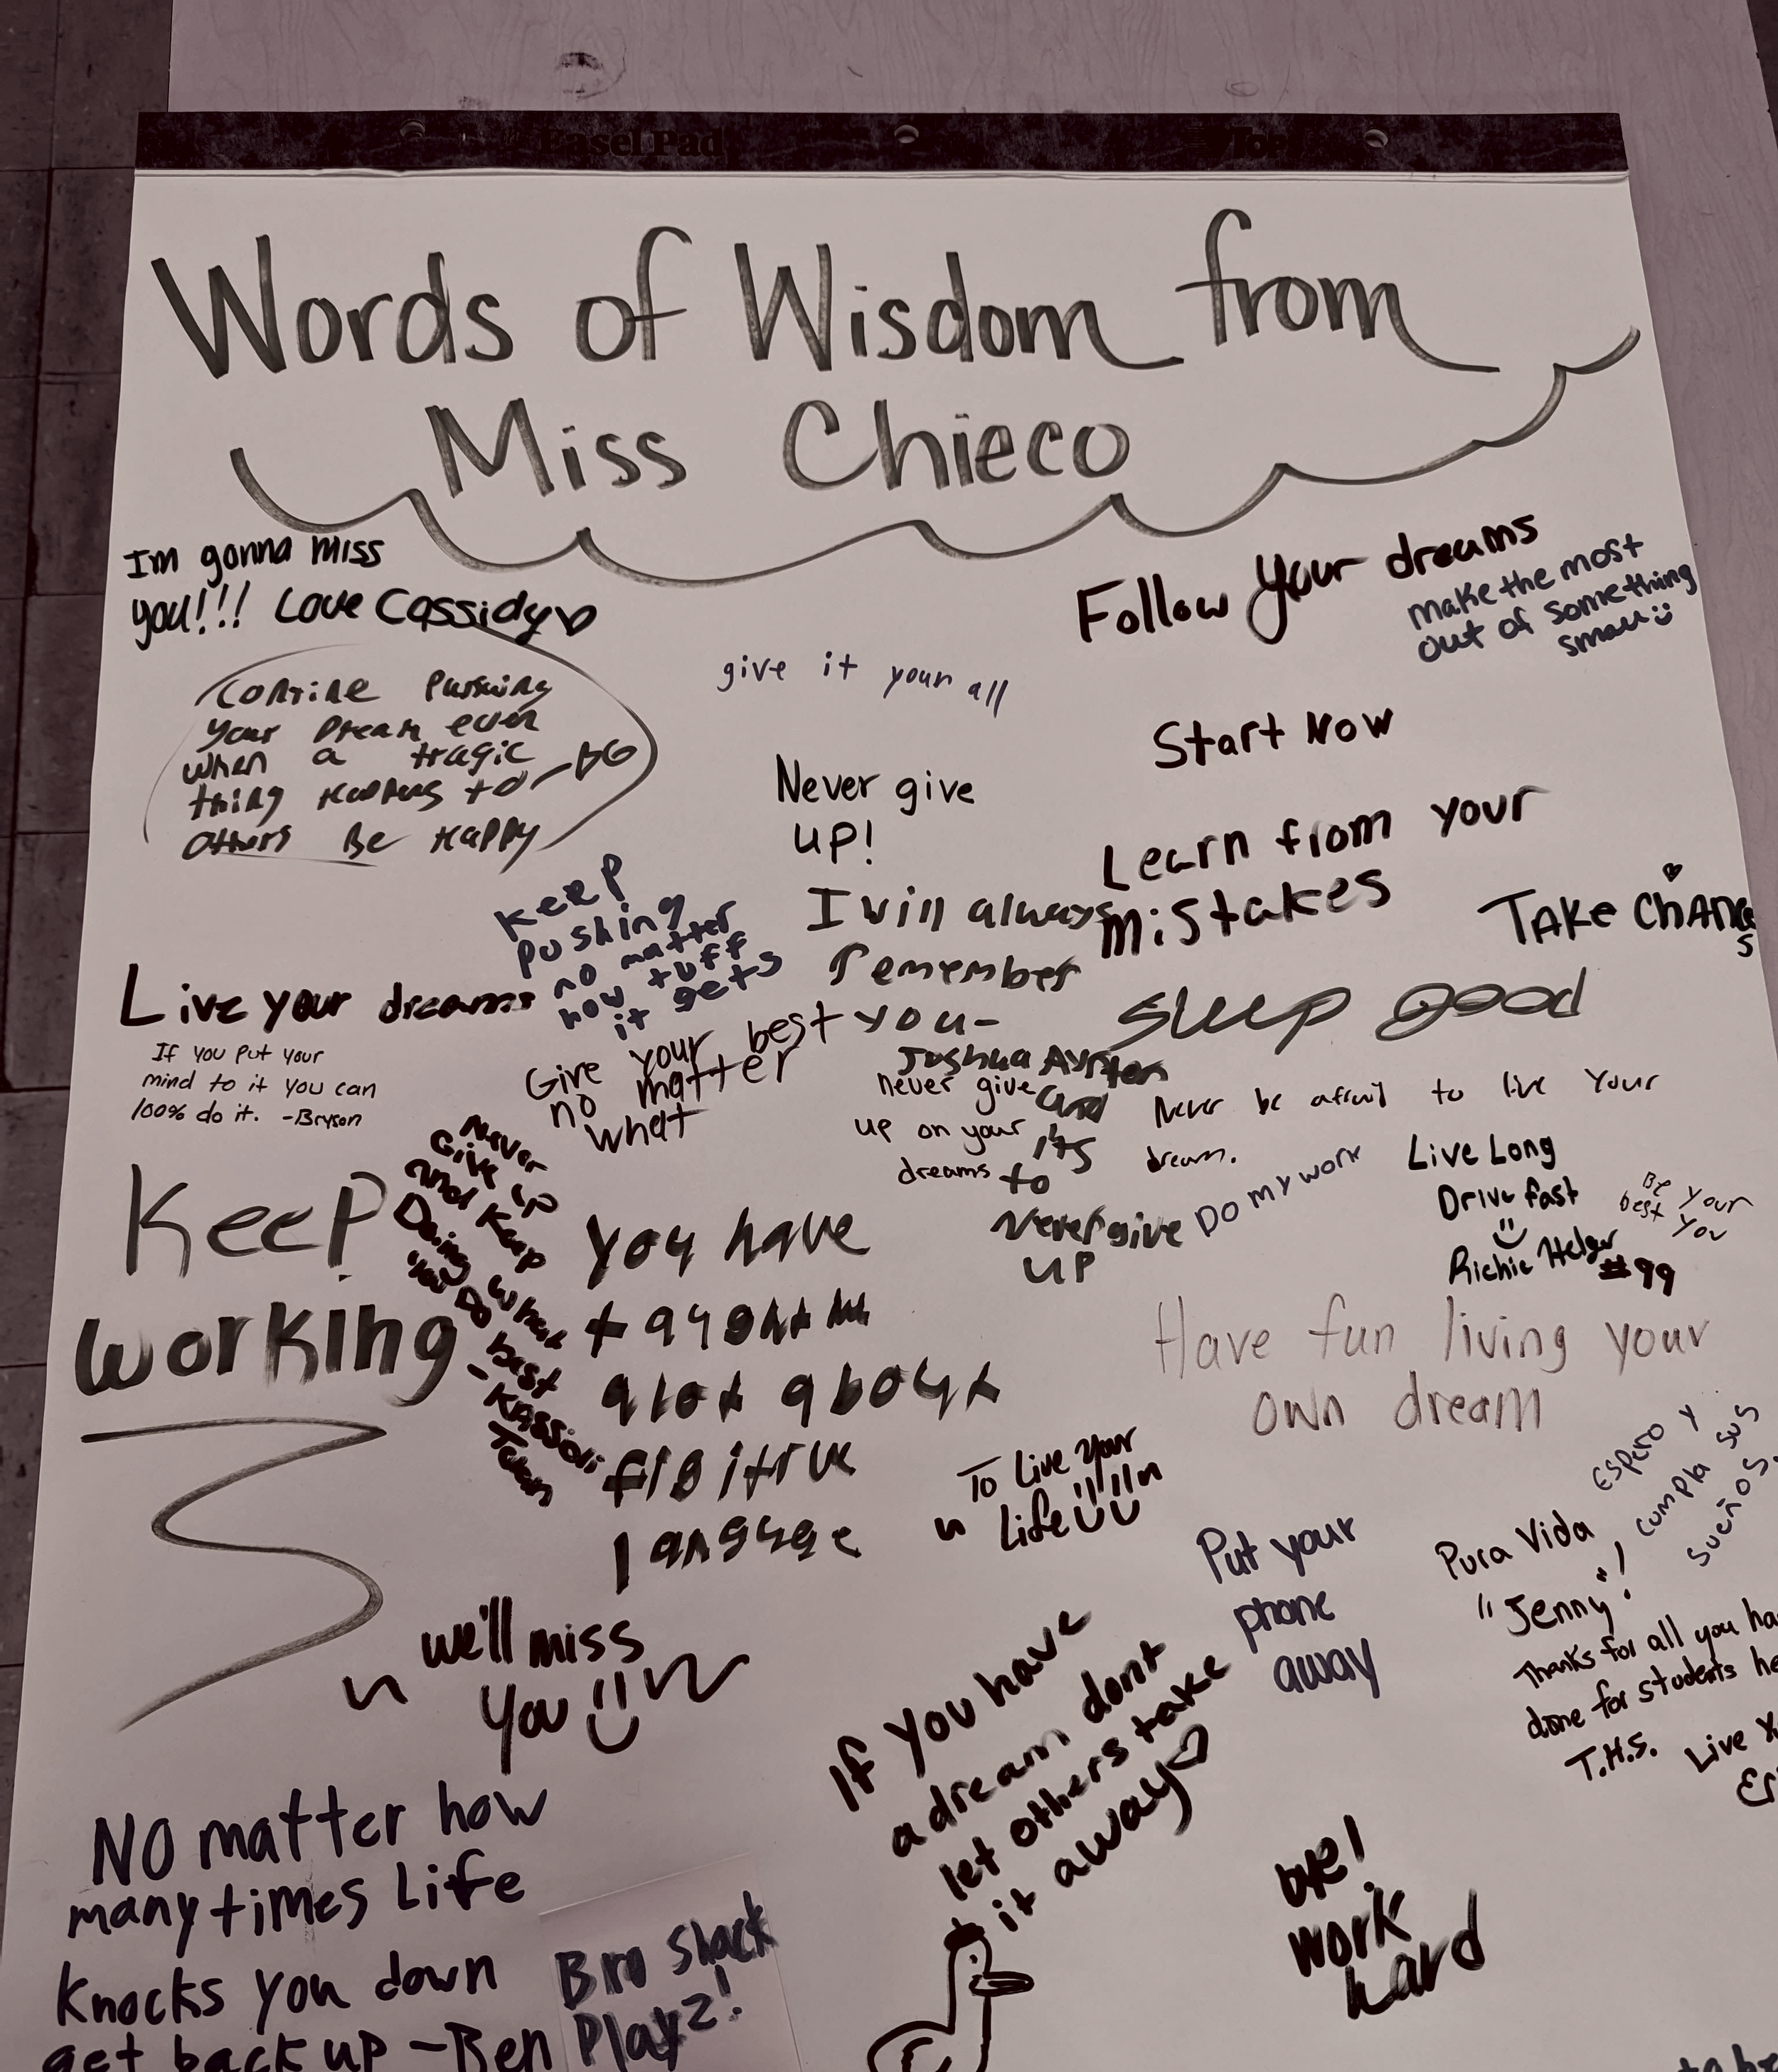 Easel Pad
Words of Wisdom from
Miss Chieco
Im gonna miss
you!!! Love Cassidy
Follow your dreams
make the most
out of something
small
give it your all
Contine Pursuing
your Dream even
when a tragic
thing to
others Be Happy
Start Now
Never give
UP!
Learn from your
mistakes
Keep
pushing
no matter
how tuff
it gets
I will always
remember
you-
Joshua
and
its
to
Never give
UP
TAKE CHANCES
Live your dreams
Sleep good
If you put your
mind to it you can
100% do it. -Bryson
Give your best
no matter
what
never give
up on your
dreams
Never be afraid to live your
dream.
Never
Give up
and Keep
Doing what
You Do best
- Kassidi
Keep
working
DO MY WORK
Live Long
Drive fast
Richie
#99
Be your
best you
you have
taught me
alot about
language
Have fun living your
own dream
To Live your
Life
Espero y
cumpla sus
sueños.
Pura Vida
"Jenny"!
Thanks for all you
done for students
T.H.S. Live
Put your
phone
away
we'll miss
you
If you have
a dream dont
let others take
it away
NO matter how
many times Life
Knocks you down
get back up -Ben
Bro Shack
Playz!
bye!
work
hard